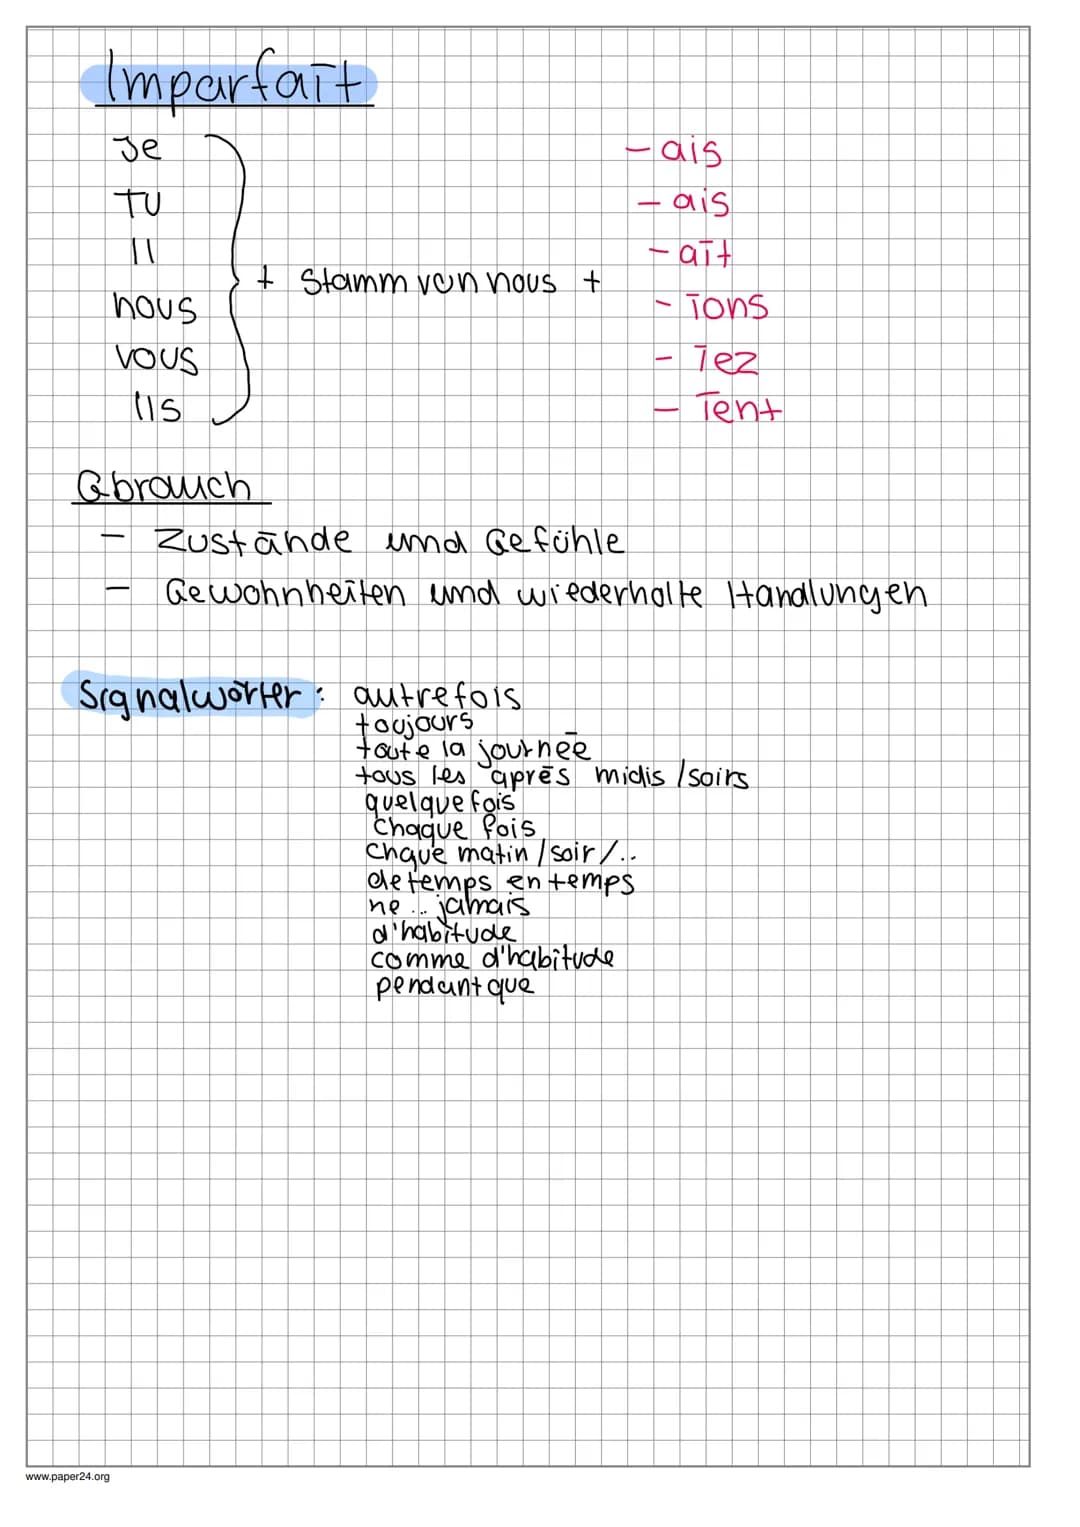 Imparfait
Je - ais
Tu - ais
Il - ait
+ Stamm von nous +
nous - ions
vous - iez
Ils - ient
Gbrauch
- Zustände und Gefühle
- Gewohnheiten und wiederholte Handlungen
Signalwörter: autrefois
toujours
toute la journée
tous les après midis / soirs
quelquefois
Chaque fois
Chque matin / soir / ..
de temps en temps
ne ... jamais
d'habitude
comme d'habitude
pendant que
www.paper24.org